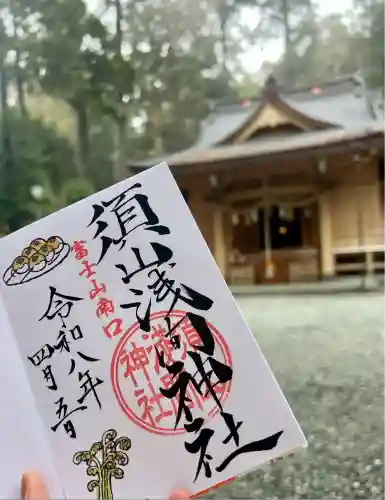 富士山南口
須山浅间神社
須山浅间神社
令和八年
四月五日